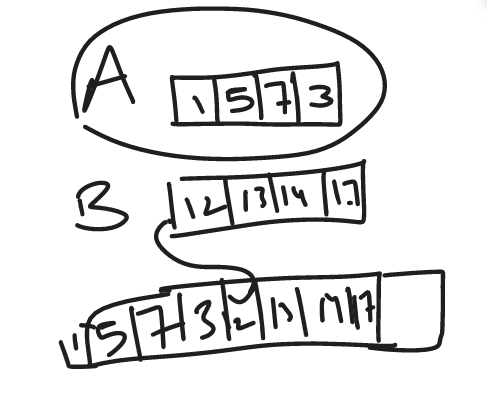 A 1 5 7 3
B 12 13 14 17
1 5 7 3 12 13 14 17